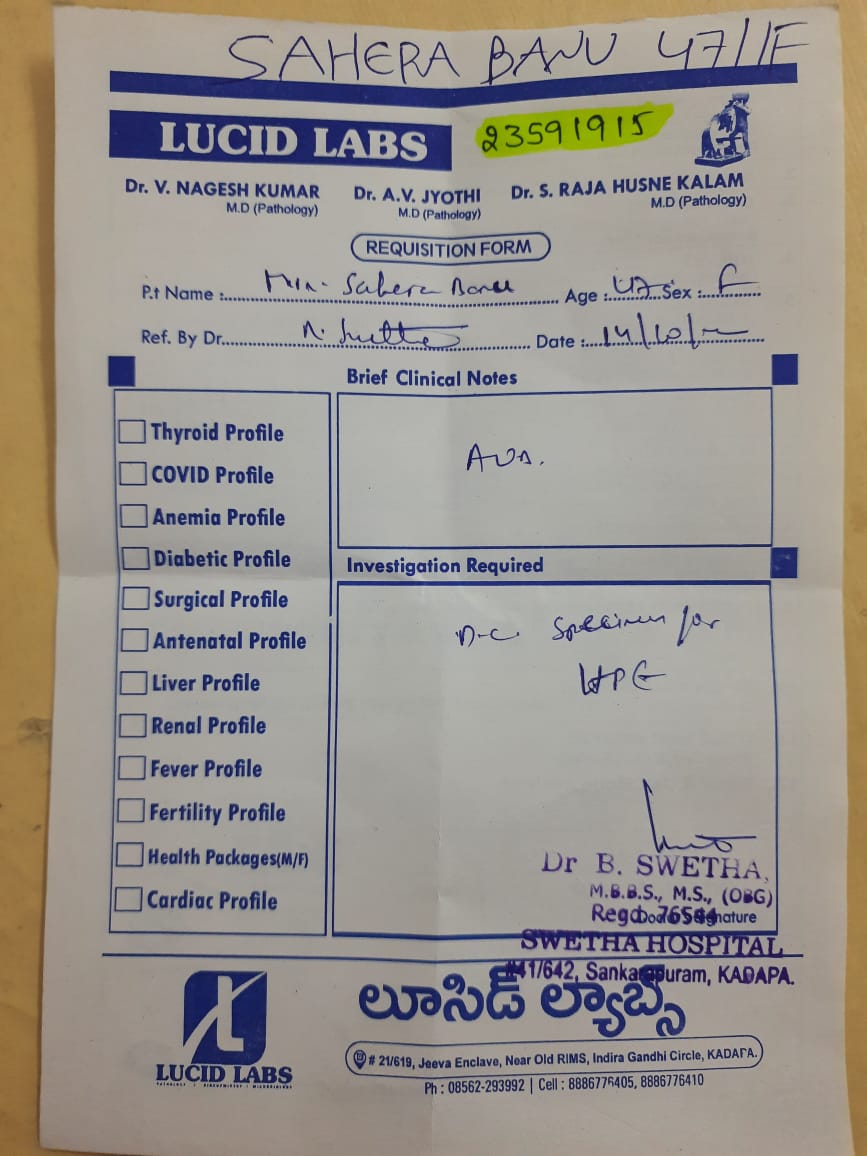 SAHERA BANU 47/F
LUCID LABS 23591915
Dr. V. NAGESH KUMAR Dr. A.V. JYOTHI Dr. S. RAJA HUSNE KALAM
M.D (Pathology) M.D (Pathology) M.D (Pathology)
REQUISITION FORM
P.t Name : Sahera Banu Age : 47 Sex : F
Ref. By Dr. Date : 14/10/
Brief Clinical Notes
Thyroid Profile
COVID Profile
Anemia Profile
Diabetic Profile
Surgical Profile
Antenatal Profile
Liver Profile
Renal Profile
Fever Profile
Fertility Profile
Health Packages(M/F)
Cardiac Profile
Investigation Required
D-C Specimen for
HPE
Dr B. SWETHA,
M.B.B.S., M.S., (OBG)
SWETHA HOSPITAL
#41/642, Sankarapuram, KADAPA.
లూసిడ్ ల్యాబ్స్
LUCID LABS
# 21/619, Jeeva Enclave, Near Old RIMS, Indira Gandhi Circle, KADAPA.
Ph : 08562-293992 | Cell : 8886776405, 8886776410